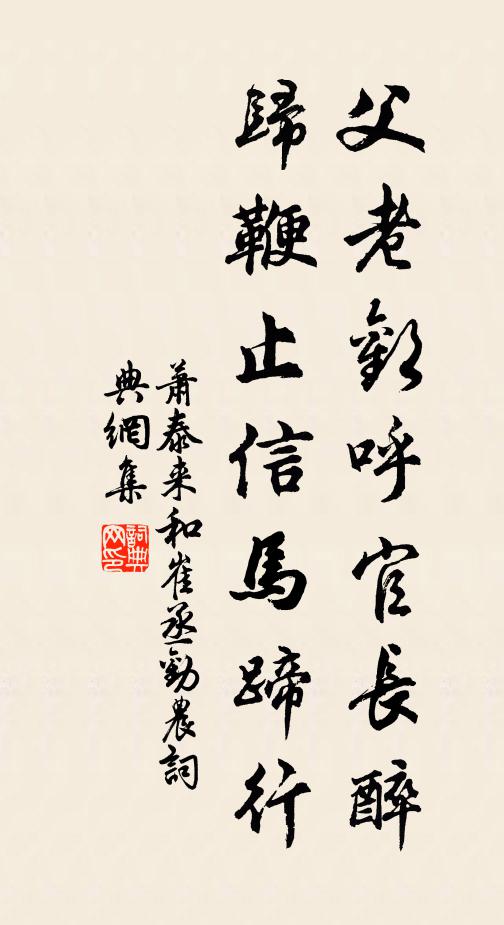 父老歡呼官長醉
歸鞭止信馬蹄行
蕭泰来和崔丞勸農詞
典網集
詞典网印